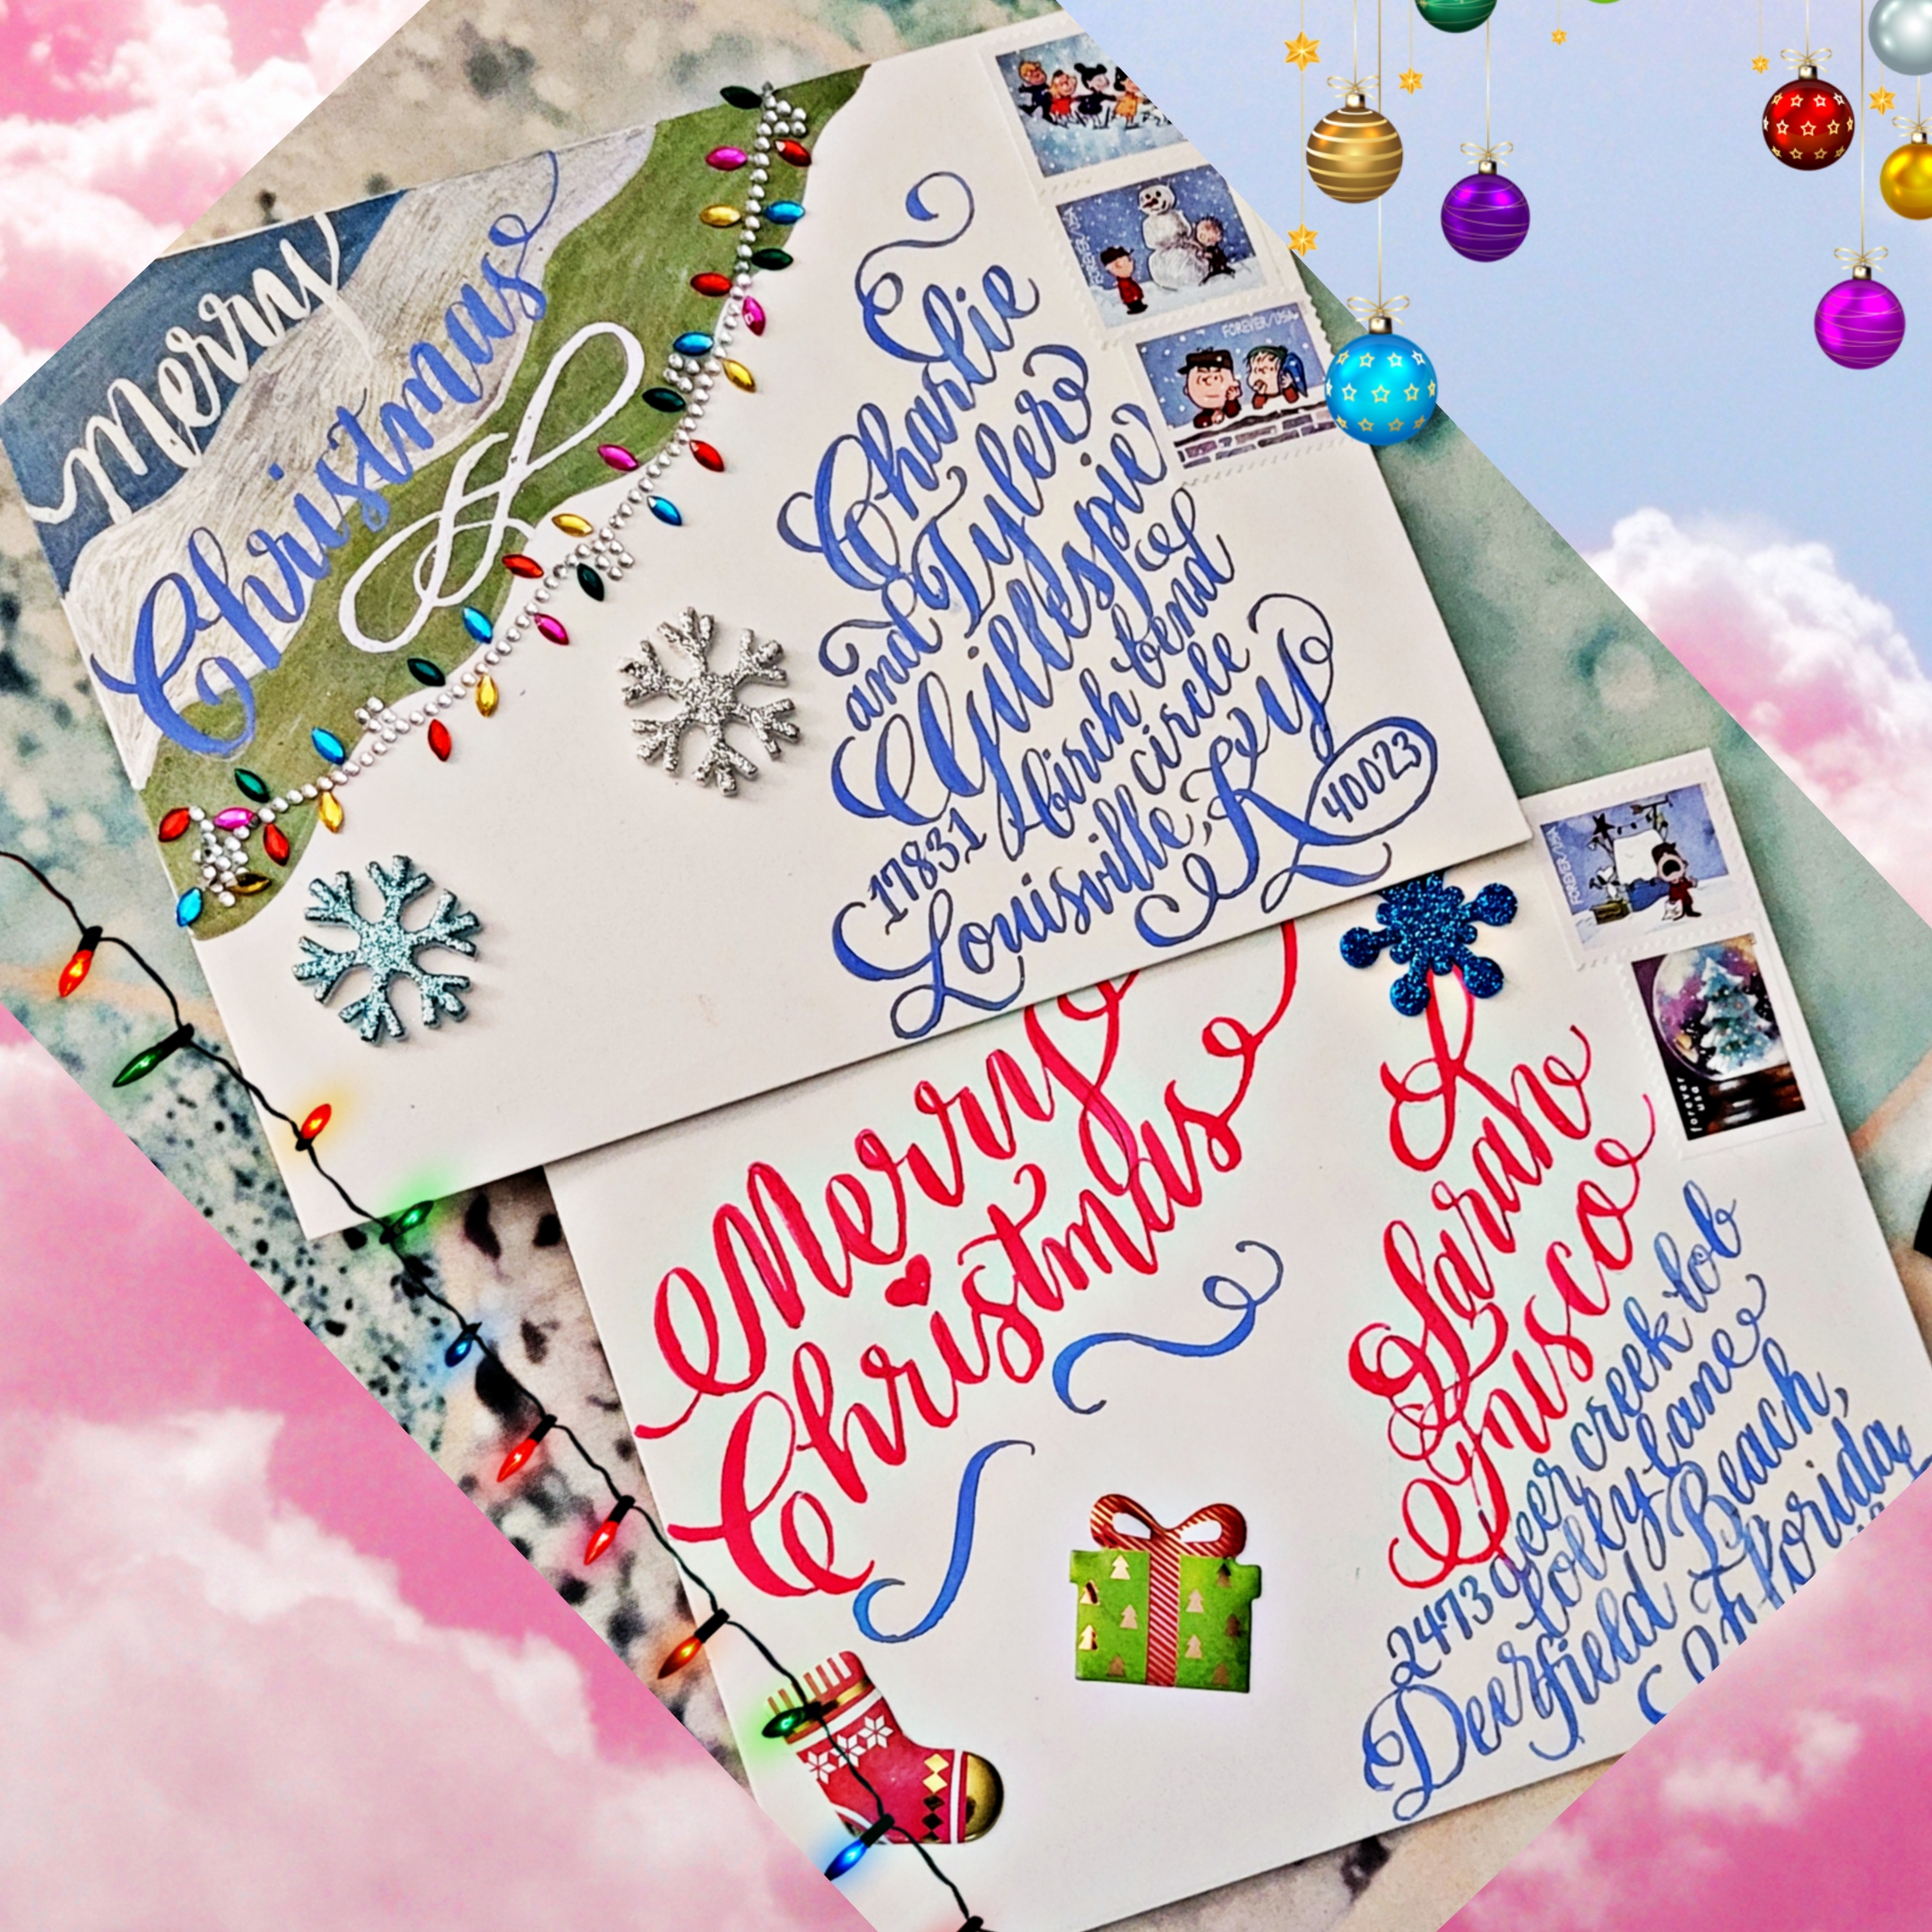 Merry
Christmas
Charlie
and Tyler
Gillespie
17831 birch bend
circle
Louisville, Ky
40023
FOREVER/USA
FOREVER/USA
Merry
Christmas
Sarah
2473 deer creek lob
lolly lane
Deerfield Beach,
Florida
FOREVER/USA
forever
usa